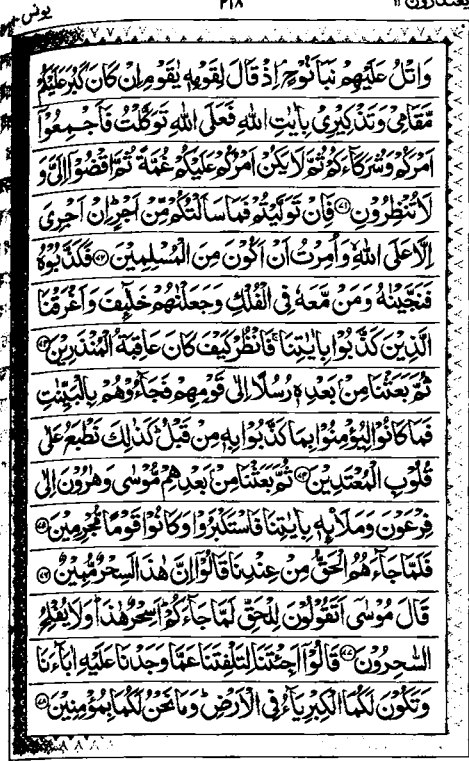 یونس ۱۰ ۲۱۸ یعتذرون ۱۱
وَاتْلُ عَلَيْهِمْ نَبَاَ نُوْحٍ اِذْ قَالَ لِقَوْمِهٖ يٰقَوْمِ اِنْ كَانَ كَبُرَ عَلَيْكُمْ
مَّقَامِيْ وَتَذْكِيْرِيْ بِاٰيٰتِ اللّٰهِ فَعَلَى اللّٰهِ تَوَكَّلْتُ فَاَجْمِعُوْٓا
اَمْرَكُمْ وَشُرَكَآءَكُمْ ثُمَّ لَا يَكُنْ اَمْرُكُمْ عَلَيْكُمْ غُمَّةً ثُمَّ اقْضُوْٓا اِلَيَّ وَ
لَا تُنْظِرُوْنِ ۝۷۱ فَاِنْ تَوَلَّيْتُمْ فَمَا سَاَلْتُكُمْ مِّنْ اَجْرٍ اِنْ اَجْرِيَ
اِلَّا عَلَى اللّٰهِ وَاُمِرْتُ اَنْ اَكُوْنَ مِنَ الْمُسْلِمِيْنَ ۝۷۲ فَكَذَّبُوْهُ
فَنَجَّيْنٰهُ وَمَنْ مَّعَهٗ فِي الْفُلْكِ وَجَعَلْنٰهُمْ خَلٰٓئِفَ وَاَغْرَقْنَا
الَّذِيْنَ كَذَّبُوْا بِاٰيٰتِنَا ۚ فَانْظُرْ كَيْفَ كَانَ عَاقِبَةُ الْمُنْذَرِيْنَ ۝۷۳
ثُمَّ بَعَثْنَا مِنْۢ بَعْدِهٖ رُسُلًا اِلٰى قَوْمِهِمْ فَجَآءُوْهُمْ بِالْبَيِّنٰتِ
فَمَا كَانُوْا لِيُؤْمِنُوْا بِمَا كَذَّبُوْا بِهٖ مِنْ قَبْلُ ؕ كَذٰلِكَ نَطْبَعُ عَلٰى
قُلُوْبِ الْمُعْتَدِيْنَ ۝۷۴ ثُمَّ بَعَثْنَا مِنْۢ بَعْدِهِمْ مُّوْسٰى وَهٰرُوْنَ اِلٰى
فِرْعَوْنَ وَمَلَا۟ئِهٖ بِاٰيٰتِنَا فَاسْتَكْبَرُوْا وَكَانُوْا قَوْمًا مُّجْرِمِيْنَ ۝۷۵
فَلَمَّا جَآءَهُمُ الْحَقُّ مِنْ عِنْدِنَا قَالُوْٓا اِنَّ هٰذَا لَسِحْرٌ مُّبِيْنٌ ۝۷۶
قَالَ مُوْسٰٓى اَتَقُوْلُوْنَ لِلْحَقِّ لَمَّا جَآءَكُمْ ؕ اَسِحْرٌ هٰذَا ؕ وَلَا يُفْلِحُ
السّٰحِرُوْنَ ۝۷۷ قَالُوْٓا اَجِئْتَنَا لِتَلْفِتَنَا عَمَّا وَجَدْنَا عَلَيْهِ اٰبَآءَنَا
وَتَكُوْنَ لَكُمَا الْكِبْرِيَآءُ فِي الْاَرْضِ ؕ وَمَا نَحْنُ لَكُمَا بِمُؤْمِنِيْنَ ۝۷۸